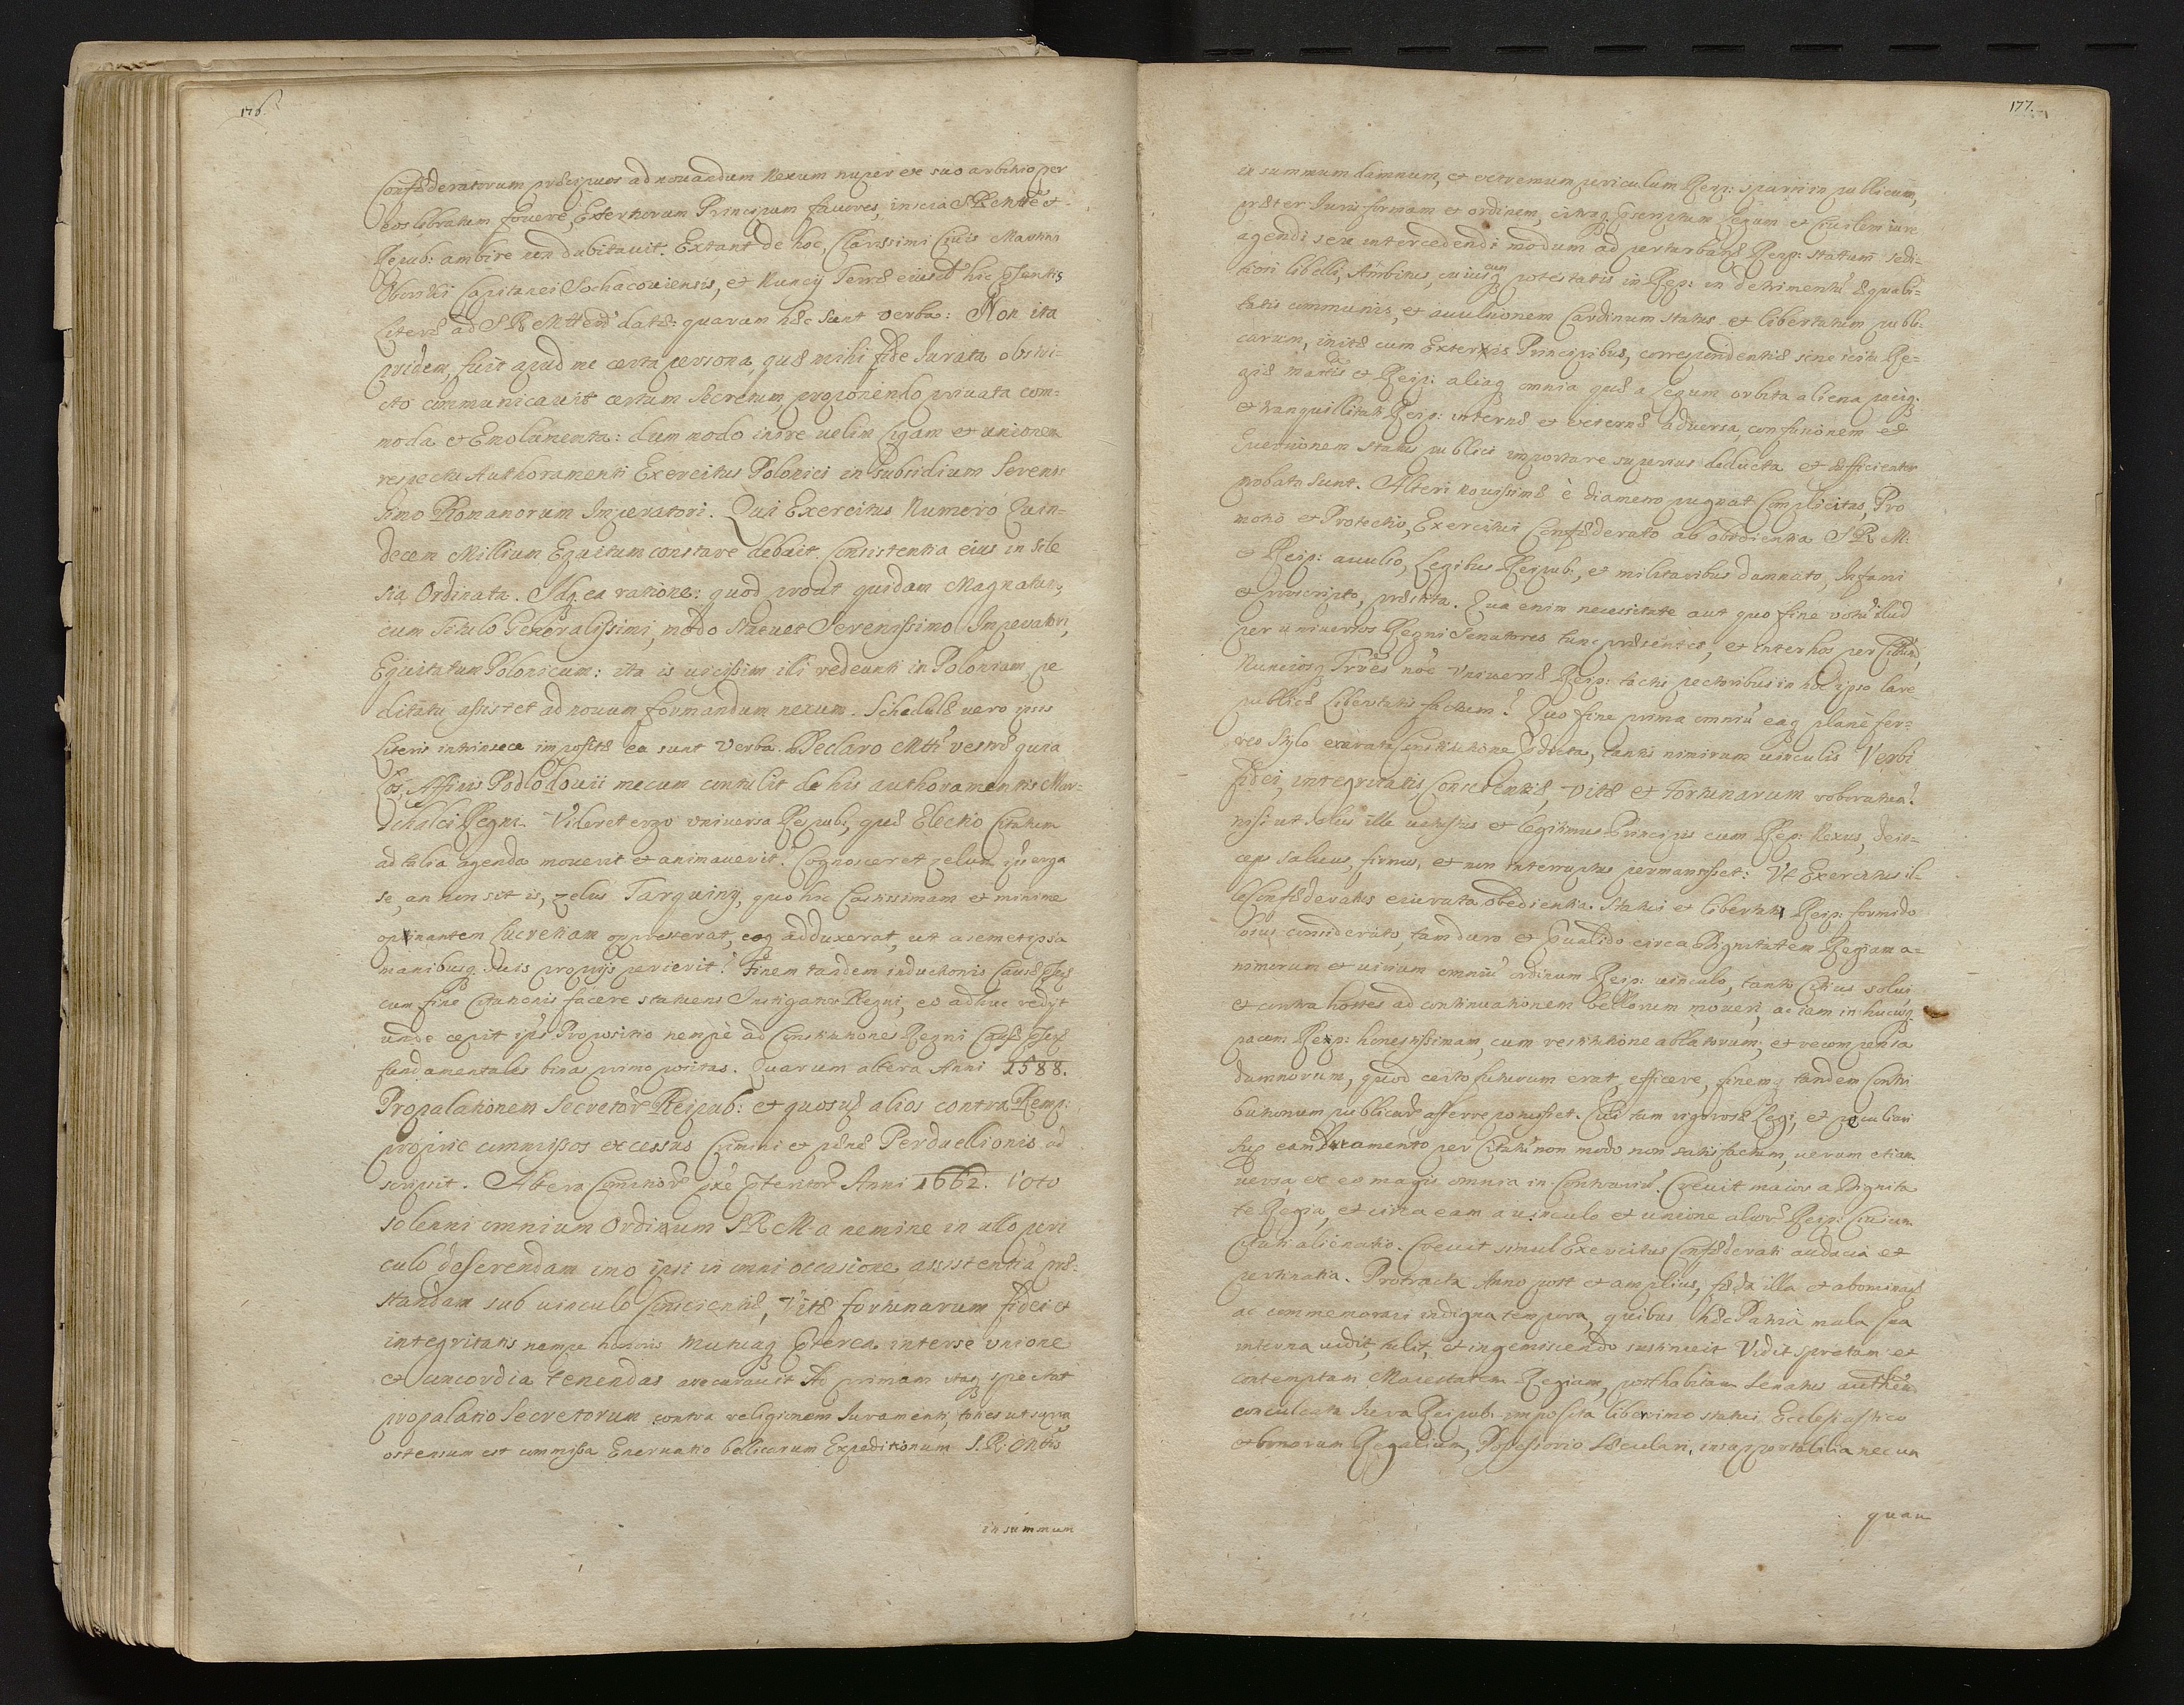 176.
Confæderatorum præcipuos ad novandum Nexum nuper ex suo arbitrio per
eos libratum fovere, Externorum Principum favores, inscia S R Mtte et
Repub: ambire non dubitavit. Extant de hoc, Clarissimi Civis Martini
Oborski Capitanei Sochacoviensis, et Nuncij Terræ eiusd hic Psentis
Literæ ad S R Mttem datæ: quarum hæc sunt verba: Non ita
pridem, fuit apud me certa persona, quæ mihi fide Jurata obstri-
cto communicavit certum Secretum, proponendo privata com-
moda et Emolumenta: dummodo inire velim Ligam et unionem
respectu Authoramenti Exercitus Polonici in subsidium Serenis
simo Romanorum Imperatori. Qui Exercitus Numero Quin-
decem Millium Equitum constare debuit. Consistentia eius in Sile
sia Ordinata. Idq ea ratione: quod prout quidam Magnatum,
cum Titulo Generalissimi, modo statuet Serenissimo Imperatori,
Equitatum Polonicum: ita is vicissim illi redeunti in Poloniam, pe
ditatu assistet ad novum formandum nexum. Schedulæ vero ipsis
Literis intrinsece impositæ ea sunt Verba. Declaro Mtti vestræ quia
Affinis Podlodovii mecum contulit de his authoramentis Mar-
schalci Regni. Videret ergo Universa Repub:, quæ Electio Citatum
ad talia agenda moverit et animaverit. Cognosceret zelum ips erga
se, an non sit is, zelus Tarquinij, quo hic Castissimam et minime
opinantem Lucretiam oppresserat, eoq adduxerat, ut a semet ipsa
manibusq suis proprijs perierit! Finem tandem inductionis Causæ Psis
cum fine Citationis facere statuens Instigator Regni, eo adhuc redijt
unde cepit ips Propositio nempè ad Constitutiones Regni Causæ Psis
fundamentales binas primo positas. Quarum altera Anni 1588.
Propalationem Secretor Reipub: et quosvis alios contra Remp:
proprie commissos excessus Crimini et pænæ Perduellionis ad
scripsit. Altera Comitior pxe Pteritor Anni 1662. Voto
solenni omnium Ordinum S R M. a nemine in ullo peri
culo deserendam imo ipsi in omni occasione assistentia præ-
standam sub vinculo Conscientiæ, Vitæ fortunarum fidei et
integritatis nempe honoris Mutuaq Pterea interse unione
et concordia tenendas assecuravit. Ad primam itaq spectat
propalatio Secretorum contra religionem Juramenti, toties ut supra
ostensum est commissa Enervatio bellicarum Expeditionum S. R. Mttis
in summum
177.
in summum damnum, et extremum periculum Reip: sparsim publicum,
præter Juris formam et ordinem, citraq Pscriptum Legum et Civilem iure
agendi seu intercedendi modum ad perturband Reip: statum sedi-
tiosi libelli, Ambitus, cuiuscunq potestatis in Rep: in detriment æquali-
tatis communis, et avulsionem Cardinum status et libertatum publi
carum, initæ cum Externis Principibus, correspondentiæ sine scitu Re-
giæ Mattis et Reip: aliaq omnia quæ a Legum orbita aliena paciq.
et tranquillitati Reip: internæ et externæ adversa, confusionem et
Eversionem status publici importare superius deducta et sufficienter
probata sunt. Alteri novissimæ è diametro pugnat Complicitas, Pro
motio et Protectio, Exercitui Confæderato ab obedientia S R M:
et Reip: avulso, Legibus Reipub:, et militaribus damnato, Infami
et proscripto, præstita. Qua enim necessitate aut quo fine votu illud
per universos Regni Senatores tunc præsentes, et inter hos per Citatu,
Nunciosq Trres noe Universæ Reip: tactis pectoribus in hoc ipso lare
publicæ Libertatis factum? Quo fine prima omniu eaq planè fer-
reo stylo exarata Constitutione Pducta, tantis nimirum vinculis Verbi
fidei, integritatis Conscientiæ, Vitæ et Fortunarum roboratum?
nisi ut solus ille vetustus et legitimus Principis cum Rep: Nexus, dein-
ceps salvus, firmus, et non interruptus permansisset: Ut Exercitus il-
le Confæderatus eiurata obedientia. Statui et libertati Reip: formido
losus, considerato, tam duro et Pvalido circa Dignitatem Regiam a-
nimorum et virium omniu ordinum Reip: vinculo, tanto Citius solui
et contra hostes ad continuationem bellorum moveri, ac iam in hucusq
pacem Reip: honestissimam, cum restitutione ablatorum, et recompensa
damnorum, quod certo futurum erat, efficere, finemq tandem Contri
butionum publicar afferre potuisset. Cui tam rigorosæ Legi, et peculiari
sup eam Juramento per Citatu non modo non satisfactum, verum etiam
versa ex eo magis omnia in Contrariu. Crevit maior a Dignita
te Regia, et circa eam a vinculo et unione alior Reip: Civium
Citati alienatio. Crevit simul Exercitus Confæderati audacia et
pertinatia. Protracta Anno post et amplius, fæda illa et abominand
ac commemorari indigna tempora, quibus hæc Patria mala sua
interna vidit, tulit, et ingemiscendo sustinuit Vidit spretam et
contemptam Maiestatem Regiam, posthabitam Senatus auth
conculcata Jura Reipub. imposita liberrimo statui Ecclesiastico
et bonorum Regalium, Possessorio Sæculari, insupportabilia nec un
quam